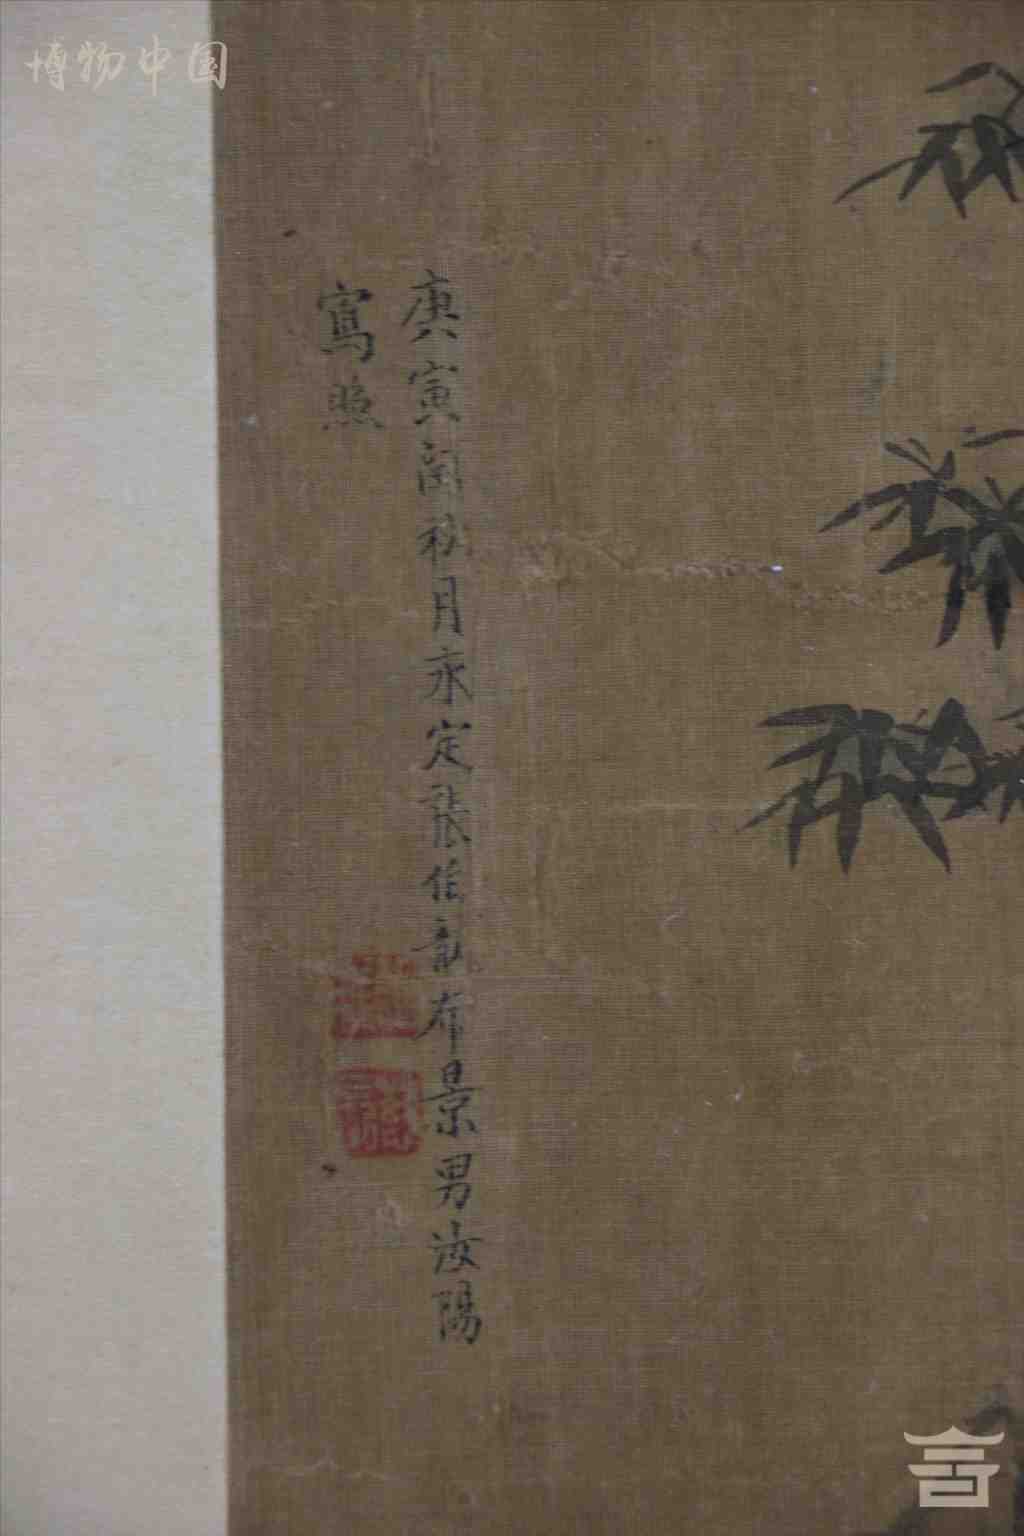 博物中国
庚寅閏秋月永定張伯龍布景男汝陽
寫照